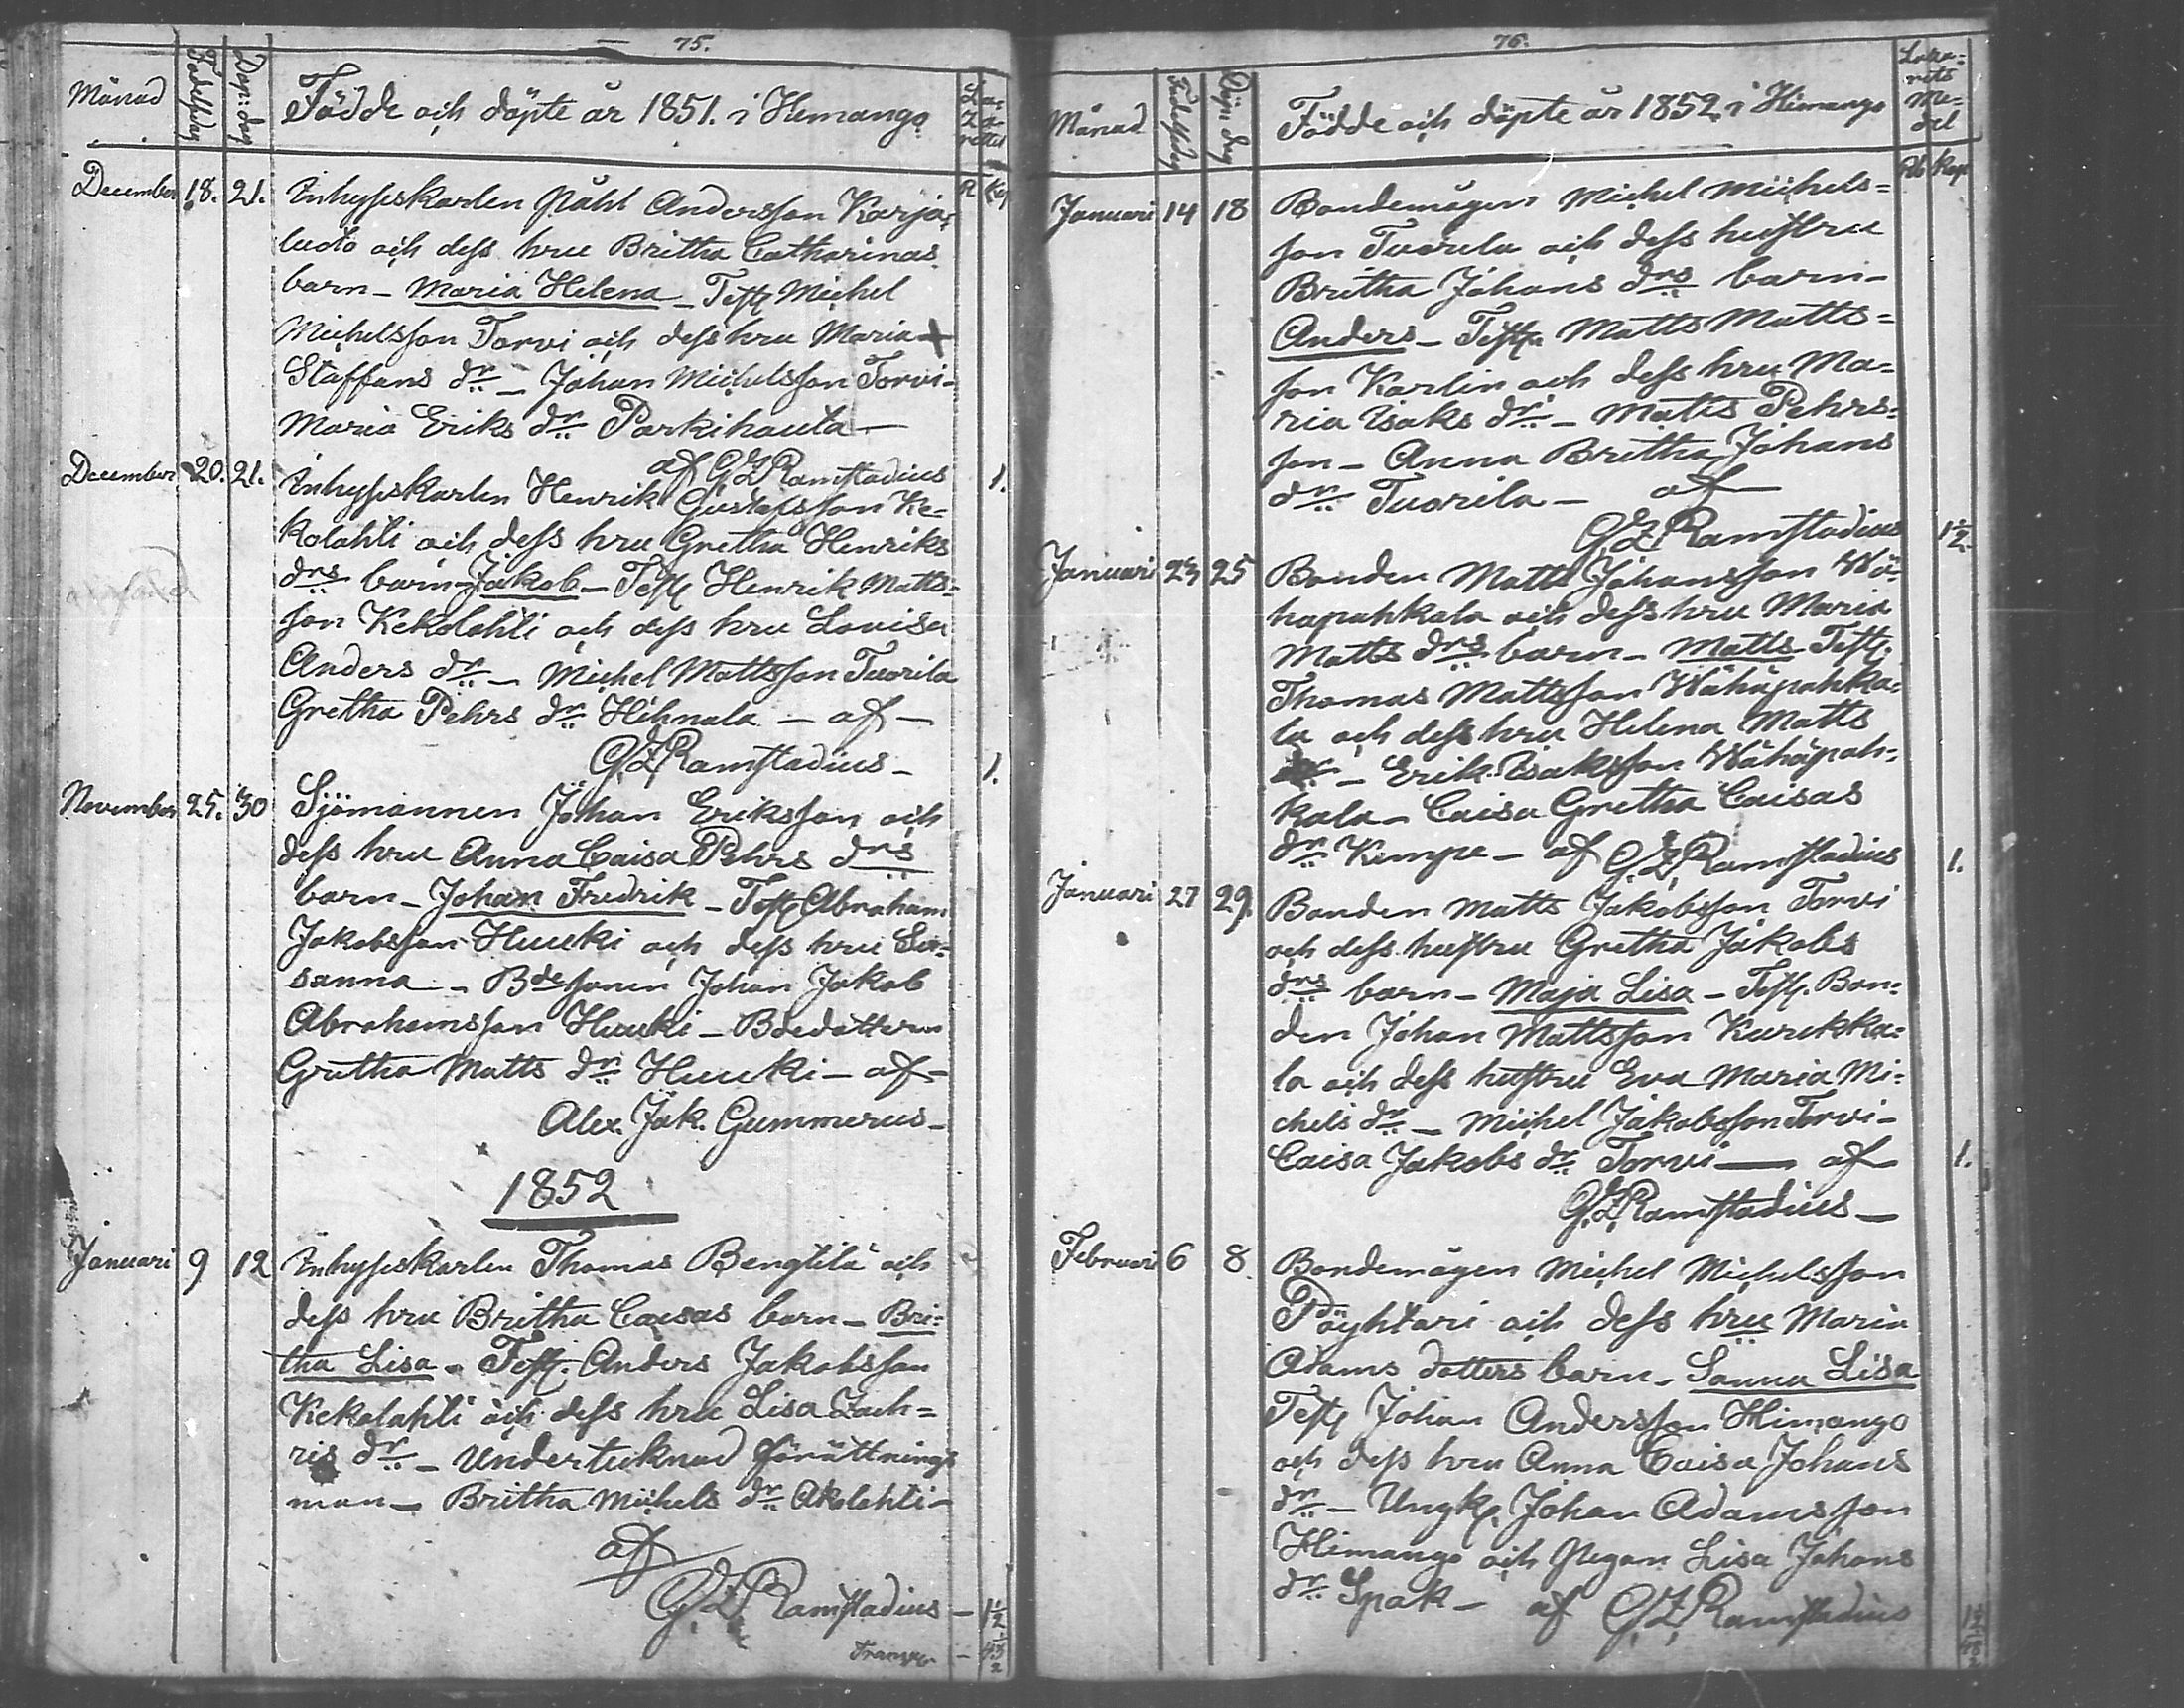 75.
Månad
Födelsedag
Dop: dag
Födde och döpte år 1851. i Himango
La-
za-
rettet
R Kop
December 18. 21. Inhyseskarlen Påhl Andersson Karja-
luoto och dess hru Britha Catharinas
barn - Maria Helena - Test Michel
Michelsson Torvi och dess hru Maria
Staffans dr - Johan Michelsson Torvi -
Maria Eriks dr Parkihauta -
af G Z Ramstadius 1.
December 20. 21. Inhyseskarlen Henrik Gustafsson Ke-
kolahti och dess hru Gretha Henriks
drs barn - Jakob - Test Henrik Matts-
son Kekolahti och dess hru Lovisa
Anders dr - Michel Mattsson Tuorila
Gretha Pehrs dr Hihnala - af -
G Z Ramstadius - 1.
November 25. 30 Sjömannen Johan Eriksson och
dess hru Anna Caisa Pehrs drs
barn - Johan Fredrik - Test Abraham
Jakobsson Huuki och dess hru Su-
sanna - Bde sonen Johan Jakob
Abrahamsson Huuki - Bdedottern
Gretha Matts dr Huuki - af -
Alex. Jak. Gummerus -
1852
Januari 9 12 Inhyseskarlen Thomas Bengtilä och
dess hru Britha Caisas barn - Bri-
tha Lisa - Test. Anders Jakobsson
Kekolahti och dess hru Lisa Zach-
ris dr - Undertecknad förättnings
man - Britha Michels dr Akolahti -
af
G Z Ramstadius - 1 1/2
Transp. -
76.
Månad
Födelsedag
Döpe dag
Födde och döpte år 1852. i Himango
Laza-
rets
Me-
del
Rb Kop
Januari 14 18 Bondemågen Michel Michels-
son Tuorila och dess hustru
Britha Johans drs barn -
Anders - Test. Matts Matts-
son Karlin och dess hru Ma-
ria Isaks dr - Matts Pehrs-
son - Anna Britha Johans
dr Tuorila - af
G Z Ramstadius 1 1/2
Januari 23 25 Bonden Matts Johansson Wä-
häpahkala och dess hru Maria
Matts drs barn - Matts Test.
Thomas Mattsson Wähäpahka-
la och dess hru Helena Matts
dr - Erik Isaksson Wähäpah-
kala - Caisa Gretha Caisas
dr Kempe - af G Z Ramstadius 1.
Januari 27 29. Bonden Matts Jakobsson Torvi
och dess hustru Gretha Jakobs
drs barn - Maja Lisa - Test. Bon-
den Johan Mattsson Kurikka-
la och dess hustru Eva Maria Mi-
chels dr - Michel Jakobsson Torvi -
Caisa Jakobs dr Torvi - af 1.
G. Z. Ramstadius -
Februari 6 8. Bondemågen Michel Michelsson
Pöyhtäri och dess hru Maria
Adams dotters barn - Sanna Lisa
Test Johan Andersson Himango
och dess hru Anna Caisa Johans
dr - Ungk. Johan Adamsson
Himango och Pigan Lisa Johans
dr Spak - af G. Z. Ramstadius